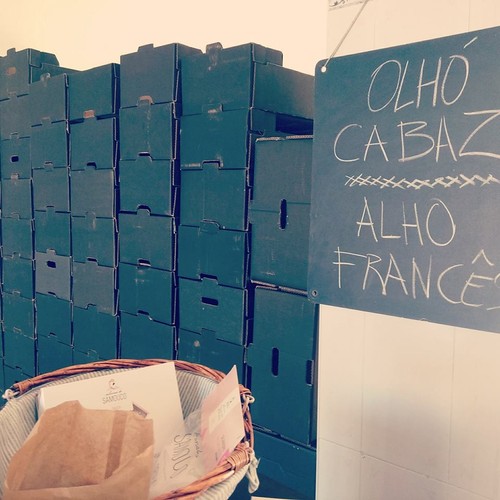 OLHÓ
CABAZ
ALHO
FRANCÊS
SAMOUCO